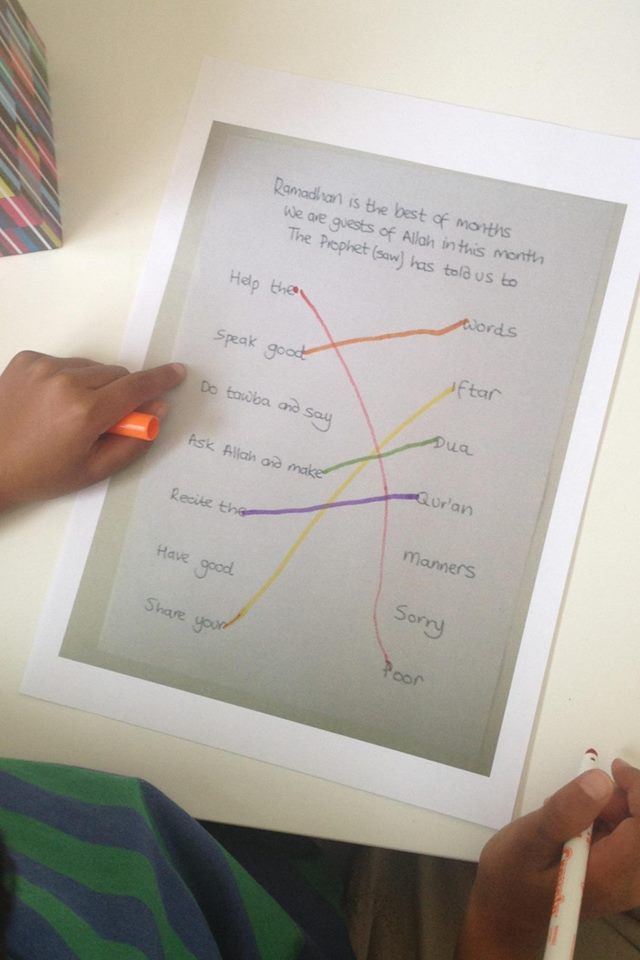 Ramadhan is the best of months
We are guests of Allah in this month
The Prophet (saw) has told us to
Help the
Words
Speak good
Iftar
Do tawba and say
Dua
Ask Allah and make
Qur'an
Recite the
Manners
Have good
Sorry
Share your
Poor